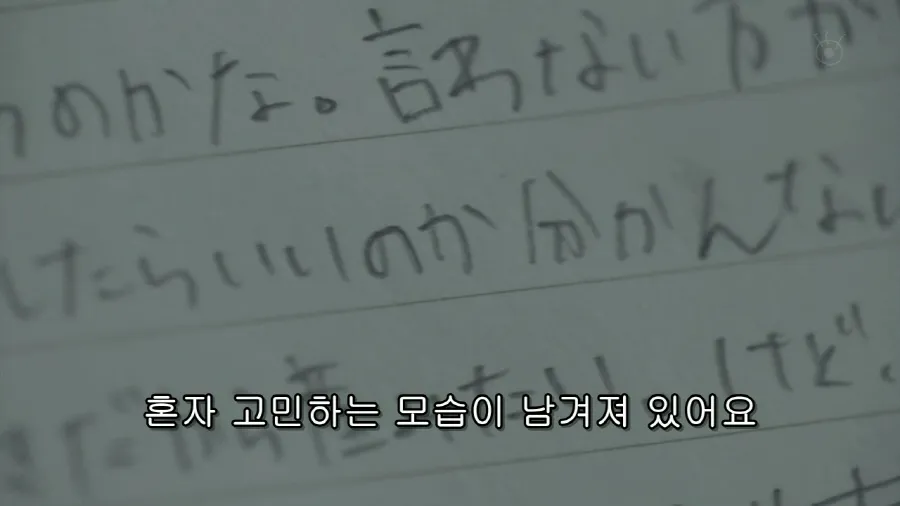 のかな。言わない方が
したらいいのか分かんない
けど、
혼자 고민하는 모습이 남겨져 있어요